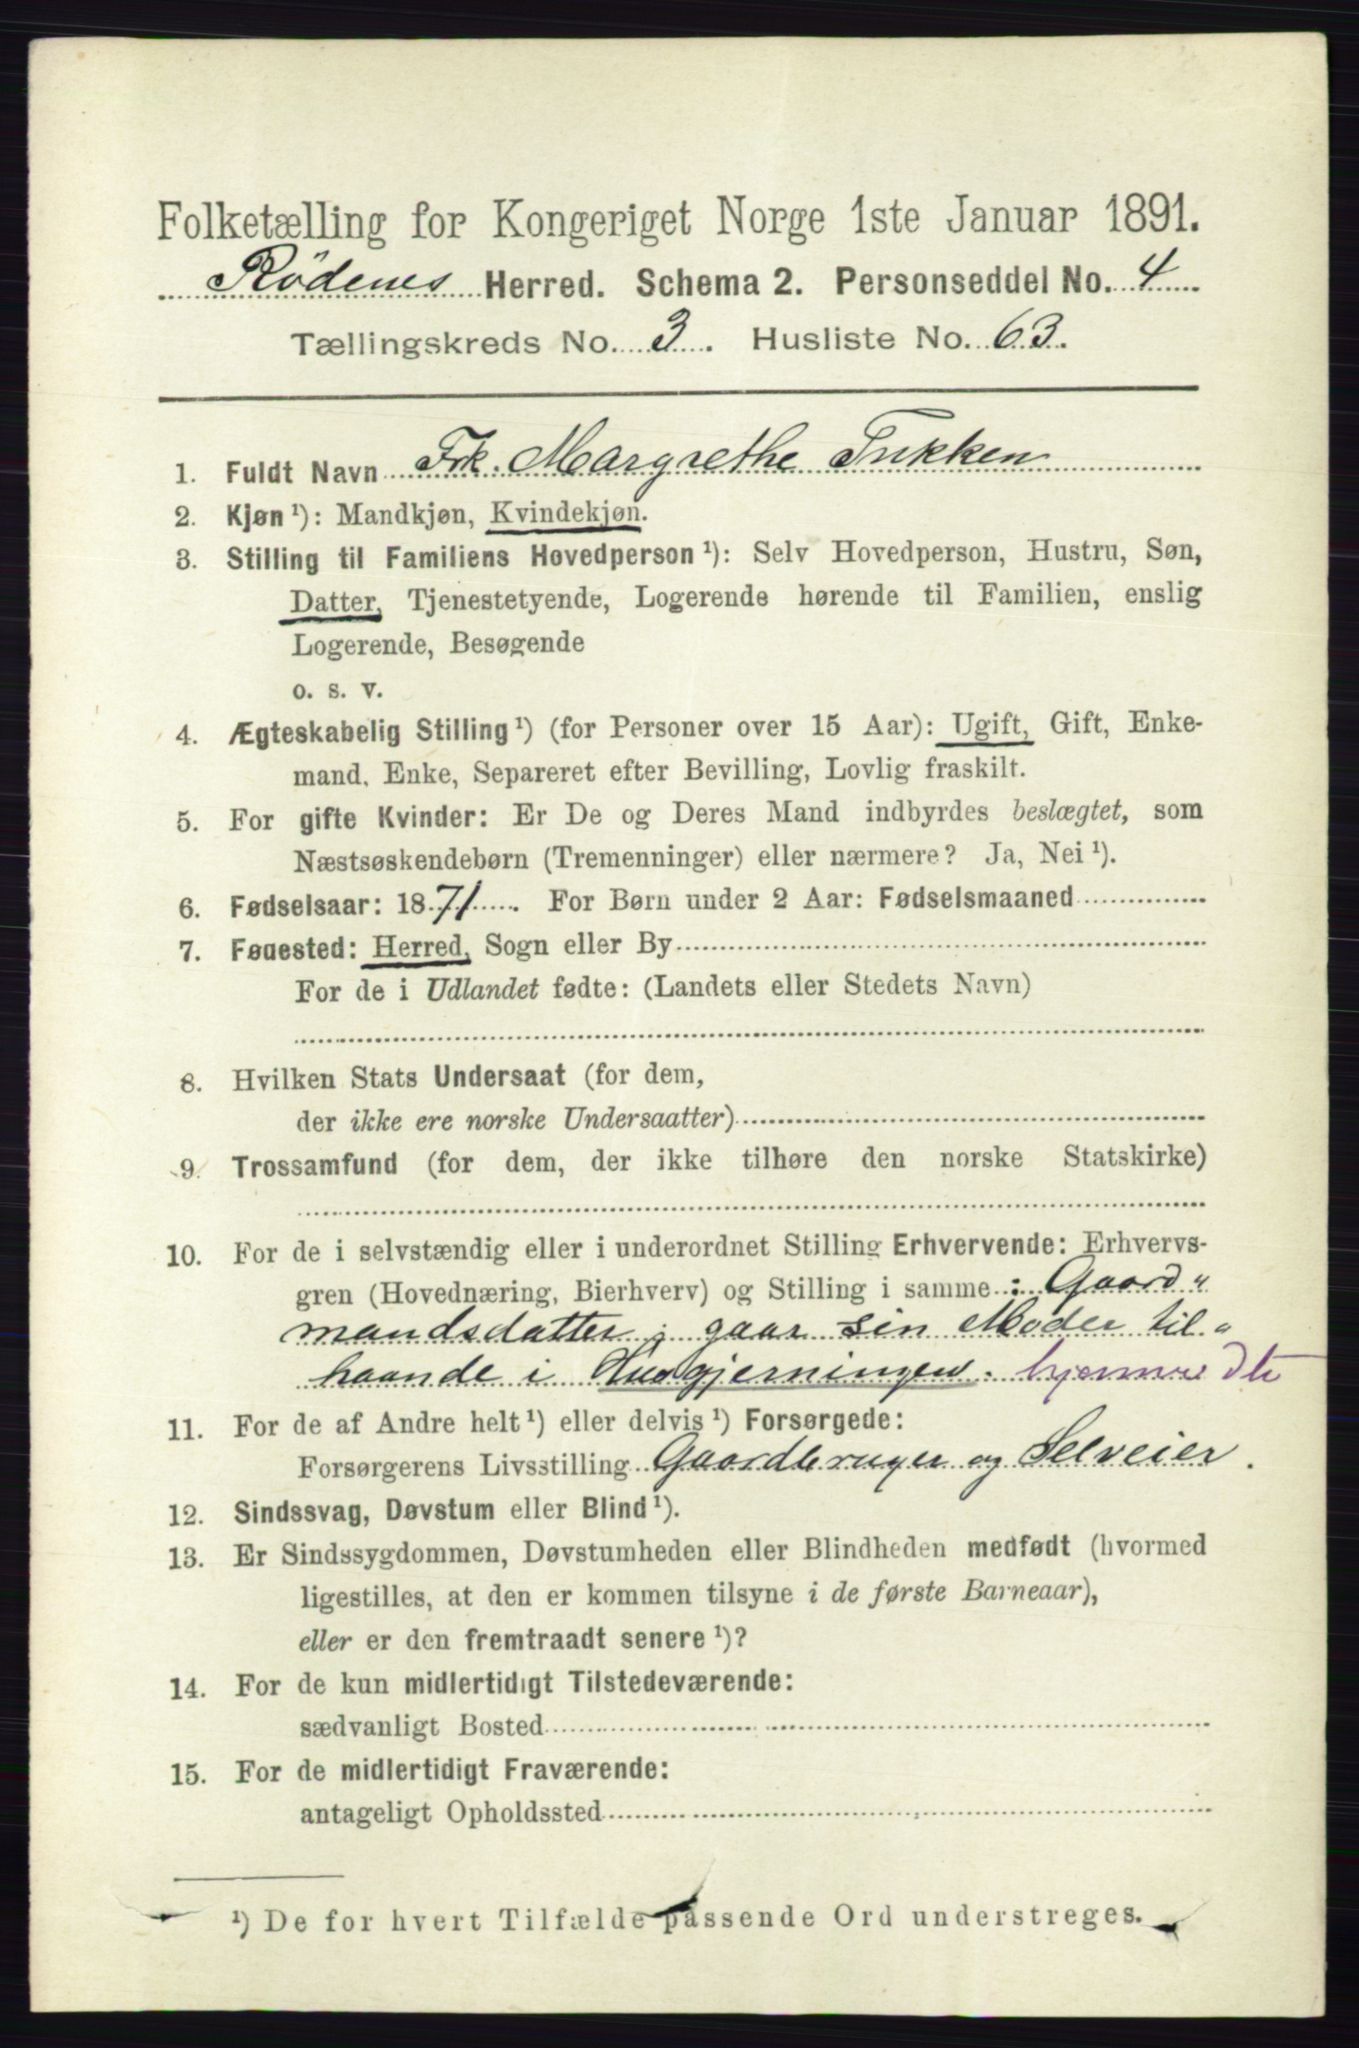 Folketælling for Kongeriget Norge 1ste Januar 1891.
Rödenes Herred. Schema 2. Personseddel No. 4
Tællingskreds No. 3. Husliste No. 63.
1. Fuldt Navn Frk. Margrethe Tukken
2. Kjøn ¹): Mandkjøn, Kvindekjøn.
3. Stilling til Familiens Hovedperson ¹): Selv Hovedperson, Hustru, Søn,
Datter, Tjenestetyende, Logerende hørende til Familien, enslig
Logerende, Besøgende
o. s. v.
4. Ægteskabelig Stilling ¹) (for Personer over 15 Aar): Ugift, Gift, Enke-
mand, Enke, Separeret efter Bevilling, Lovlig fraskilt.
5. For gifte Kvinder: Er De og Deres Mand indbyrdes beslægtet, som
Næstsøskendebørn (Tremenninger) eller nærmere? Ja, Nei ¹).
6. Fødselsaar: 1871. For Børn under 2 Aar: Fødselsmaaned
7. Fødested: Herred, Sogn eller By
For de i Udlandet fødte: (Landets eller Stedets Navn)
8. Hvilken Stats Undersaat (for dem,
der ikke ere norske Undersaatter)
9. Trossamfund (for dem, der ikke tilhøre den norske Statskirke)
10. For de i selvstændig eller i underordnet Stilling Erhvervende: Erhvervs-
gren (Hovednæring, Bierhverv) og Stilling i samme: Gaard"
mandsdatter; gaar sin Moder til"
haande i Husgjerningen. hjemme Dtr
11. For de af Andre helt ¹) eller delvis ¹) Forsørgede:
Forsørgerens Livsstilling Gaardbruger og Selveier.
12. Sindssvag, Døvstum eller Blind ¹).
13. Er Sindssygdommen, Døvstumheden eller Blindheden medfødt (hvormed
ligestilles, at den er kommen tilsyne i de første Barneaar),
eller er den fremtraadt senere ¹)?
14. For de kun midlertidigt Tilstedeværende:
sædvanligt Bosted
15. For de midlertidigt Fraværende:
antageligt Opholdssted
¹) De for hvert Tilfælde passende Ord understreges.